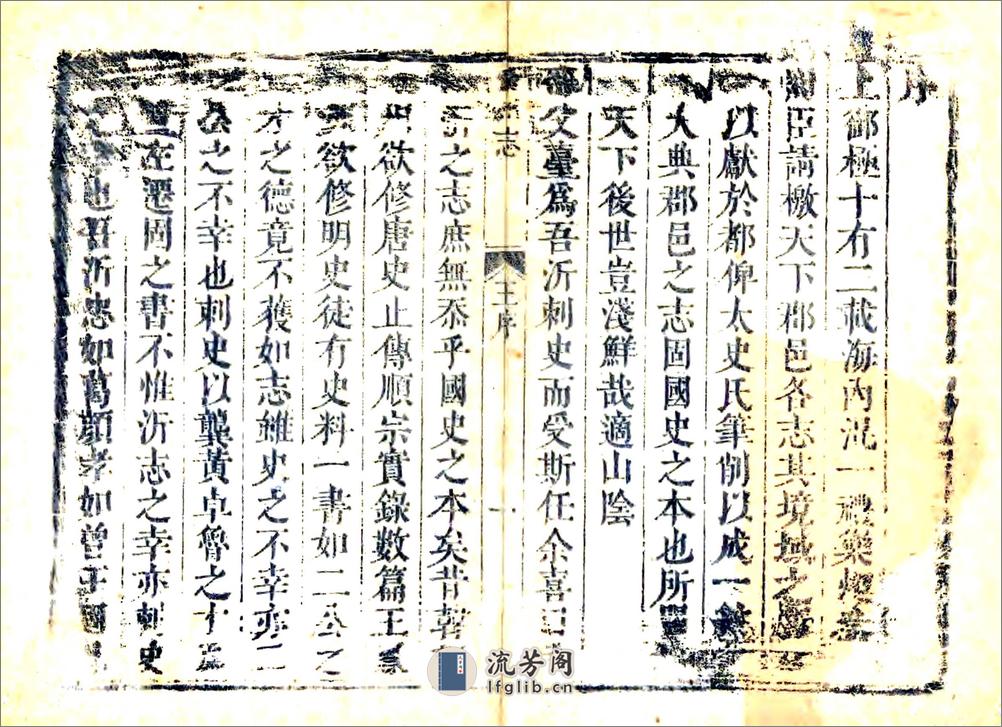 序
上御極十有二載海內混一禮樂
臣請檄天下郡邑各志其境域之
以獻於都俾太史氏筆削以成一
大典郡邑之志固國史之本也所
天下後世豈淺鮮哉適山陰
父臺爲吾沂刺史而受斯任余喜曰
志
王序
一
沂之志庶無忝乎國史之本矣昔韓
欲修唐史止傳順宗實錄數篇王
欲修明史徒有史料一書如二公之
才之德竟不獲如志雖史之不幸亦二
公之不幸也刺史以龔黃卓魯之才
左遷固之書不惟沂志之幸亦刺史
也吾沂忠如葛顔孝如曾王
流芳阁
lfglib.cn